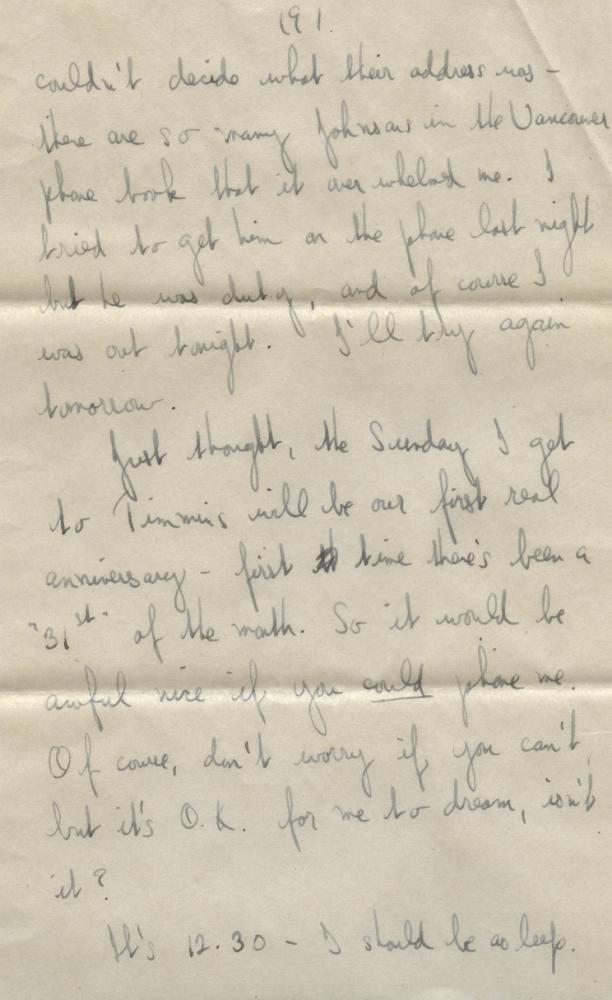 (9).
couldn't decide what their address was -
there are so many Johnsons in the Vancouver
phone book that it overwhelmed me. I
tried to get him on the phone last night
but he was duty, and of course I
was out tonight. I'll try again
tomorrow.
Just thought, the Sunday I get
to Timmins will be our first real
anniversary - first time there's been a
"31st" of the month. So it would be
awful nice if you could phone me.
Of course, don't worry if you can't,
but it's O.K. for me to dream, isn't
it?
It's 12.30 - I should be asleep.